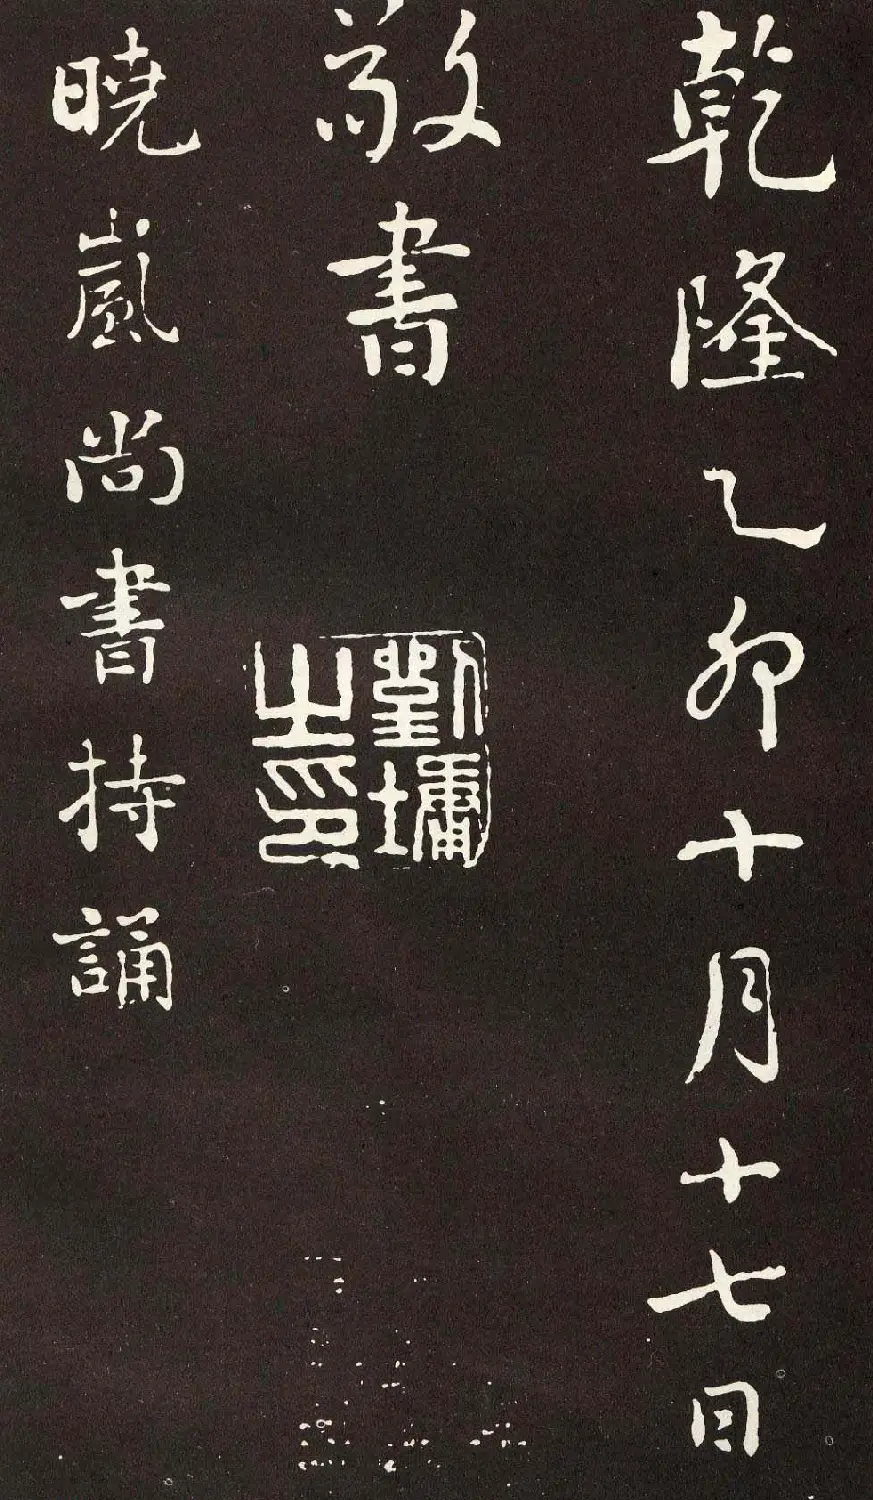 乾隆乙卯十月十七日
敬書
劉墉之印
曉嵐尚書持誦